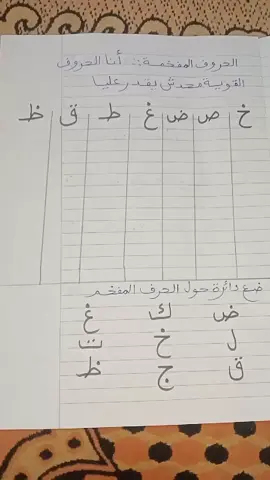 الحروف المفخمة:. أنا الحروف
القوية محدش يقدر عليا
خ ص ض غ ط ق ظ
ضع دائرة حول الحرف المفخم
ض ك غ
ل خ ت
ق ج ظ